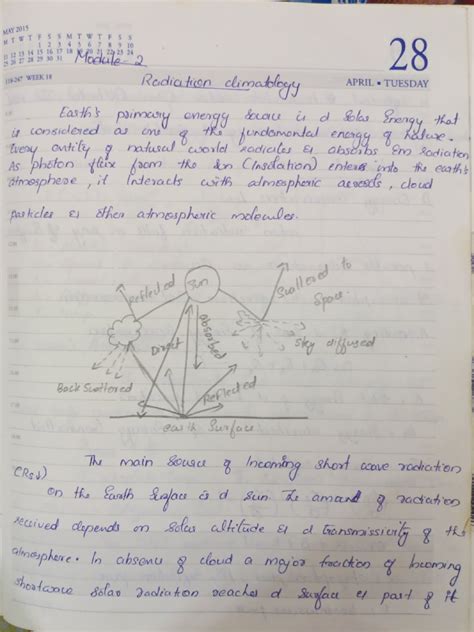 MAY 2015
M T W T F S S
1 2 3
4 5 6 7 8 9 10
11 12 13 14 15 16 17
18 19 20 21 22 23 24
25 26 27 28 29 30 31
118-247 WEEK 18
Module-2
28
APRIL • TUESDAY
Radiation climatology
Earth's primary energy source is d Solar Energy that
is considered as one of the fundamental energy of nature.
Every entity of natural world radiates & absorbs Em radiation
As photon flux from the Sun (Insolation) enters into the earth's
atmosphere, it Interacts with atmospheric aerosols, cloud
particles & other atmospheric molecules.
Reflected
Sun
Scattered to
Space
absorbed
Direct
Sky diffused
Back Scattered
Reflected
earth Surface
The main source of Incoming short wave radiation
(Rs↓)
on the Earth Surface is d sun The amount of radiation
received depends on Solar altitude & d transmissivity of the
atmosphere. In absence of cloud a major fraction of Incoming
shortwave solar radiation reaches d Surface & part of it